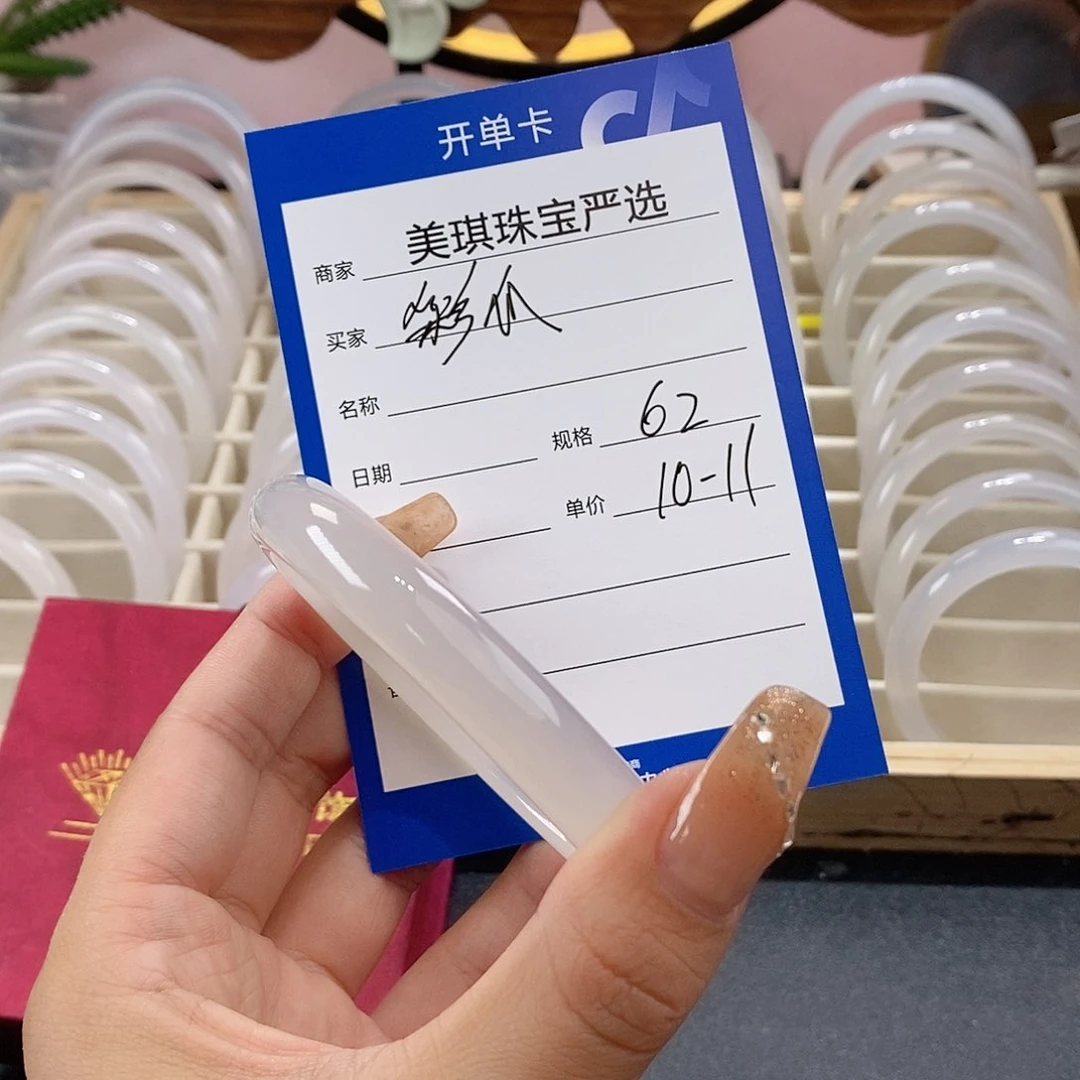 开单卡
商家 美琪珠宝严选
买家
名称
规格 62
日期
单价 10-11